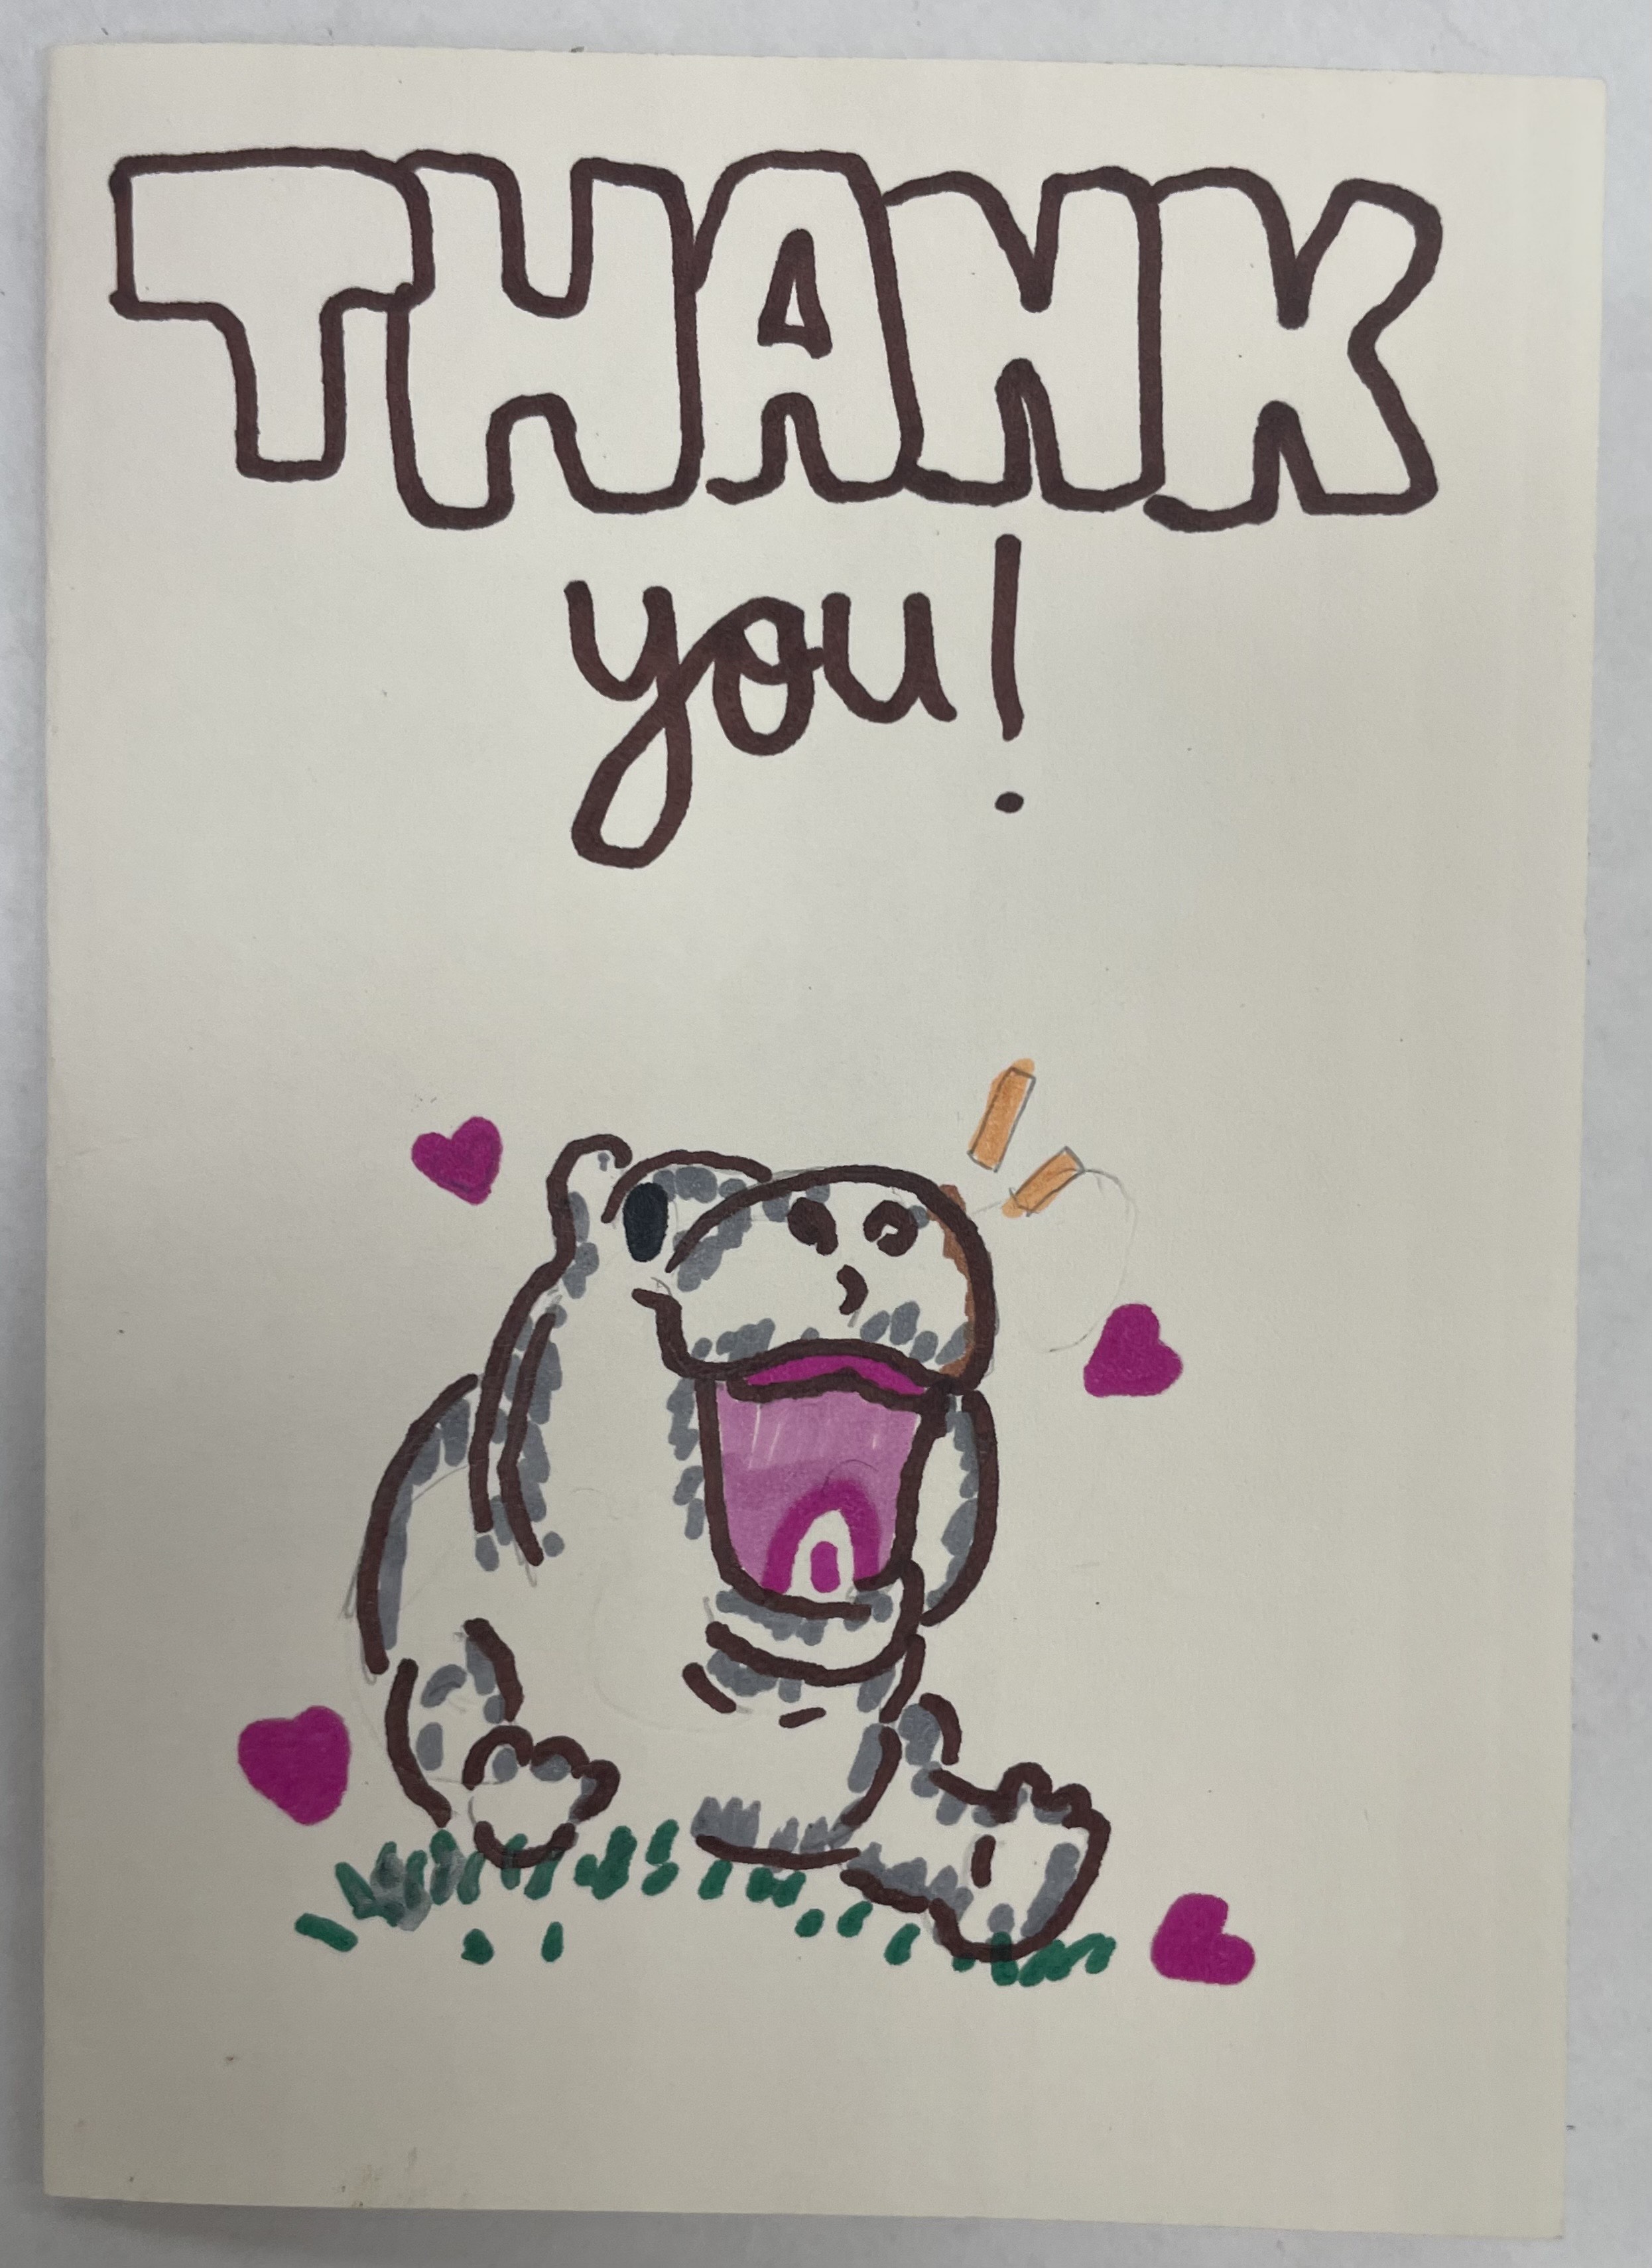 THANK
you!